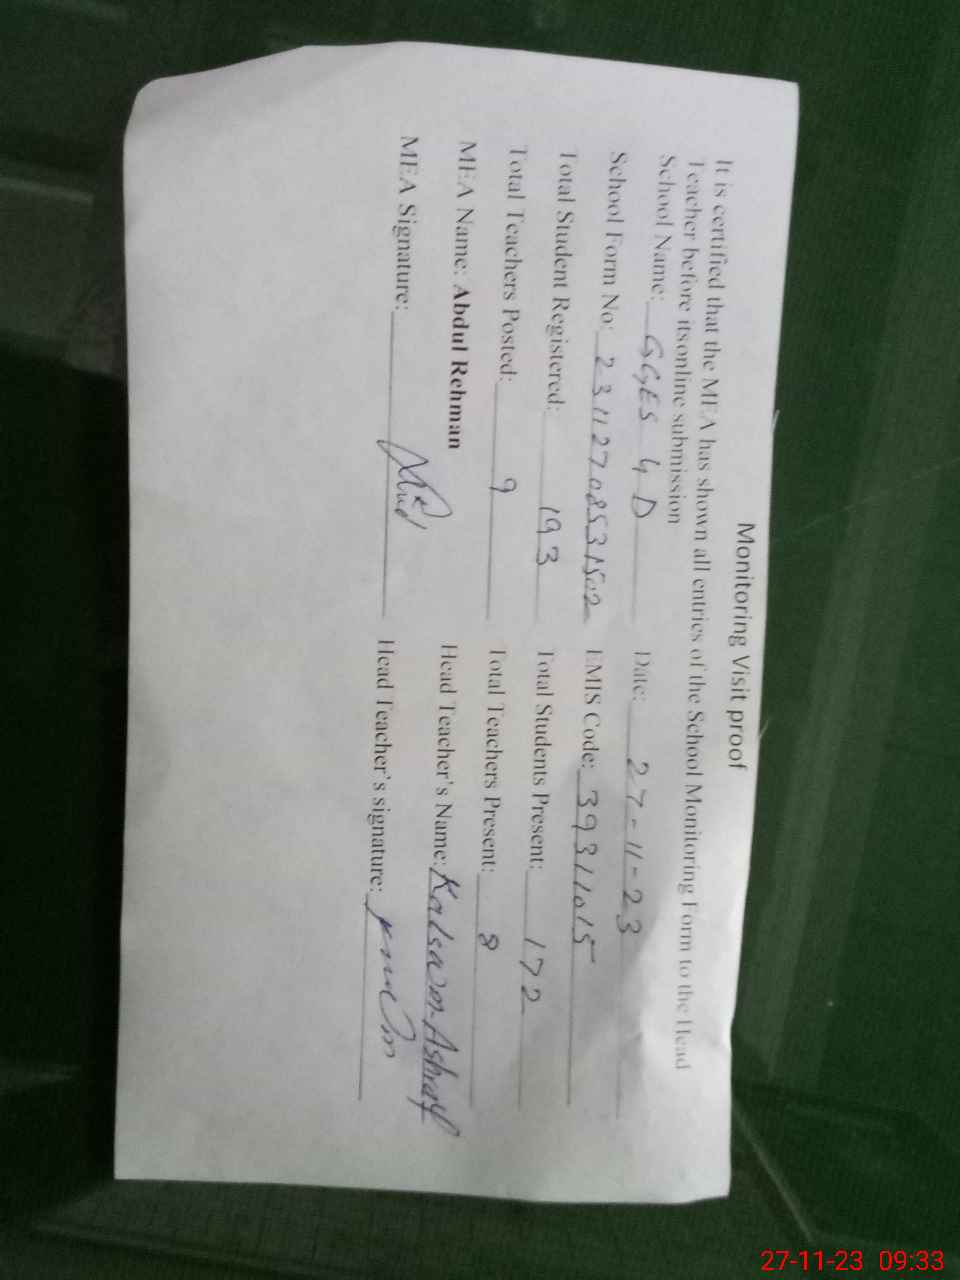 Monitoring Visit proof
It is certified that the MEA has shown all entries of the School Monitoring Form to the Head
Teacher before itsonline submission
School Name: GGES 4 D Date: 27-11-23
School Form No: 23112708531502 EMIS Code: 39311015
Total Student Registered: 193 Total Students Present: 172
Total Teachers Posted: 9 Total Teachers Present: 8
MEA Name: Abdul Rehman Head Teacher's Name: Kalsoom Ashraf
MEA Signature: Head Teacher's signature:
27-11-23 09:33